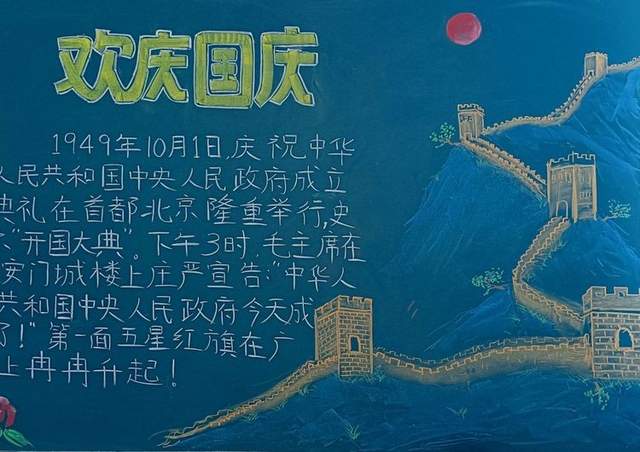 欢庆国庆
1949年10月1日,庆祝中华
人民共和国中央人民政府成立
典礼在首都北京隆重举行,史
"开国大典"。下午3时,毛主席在
安门城楼上庄严宣告:"中华人
共和国中央人民政府今天成
了!"第一面五星红旗在广
上冉冉升起!